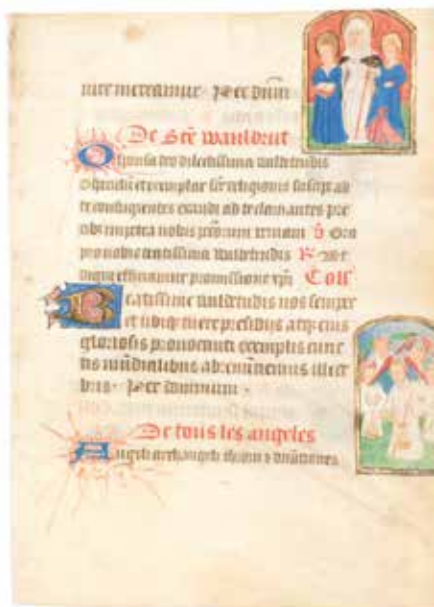 uire mereamur · Per dnm
De Ste wauldrut
O sponsa deo dilectissima waldetrudis
speculu et exemplar religionis suscipe ad
te confugientes exaudi ad te clamantes pre
cibus impetra nobis veniam V Ora
pro nobis beatissima waldetrudis R Ut
digni efficiamur promissione xpi Coll
Beatissime waldetrudis nos semper
et ubiq tuere presidiis atq eius
gloriosis provocati exemplis cunc
tis mundialibus illece
bris · Per dominum ·
De tous les angeles
Angeli archangeli throni &